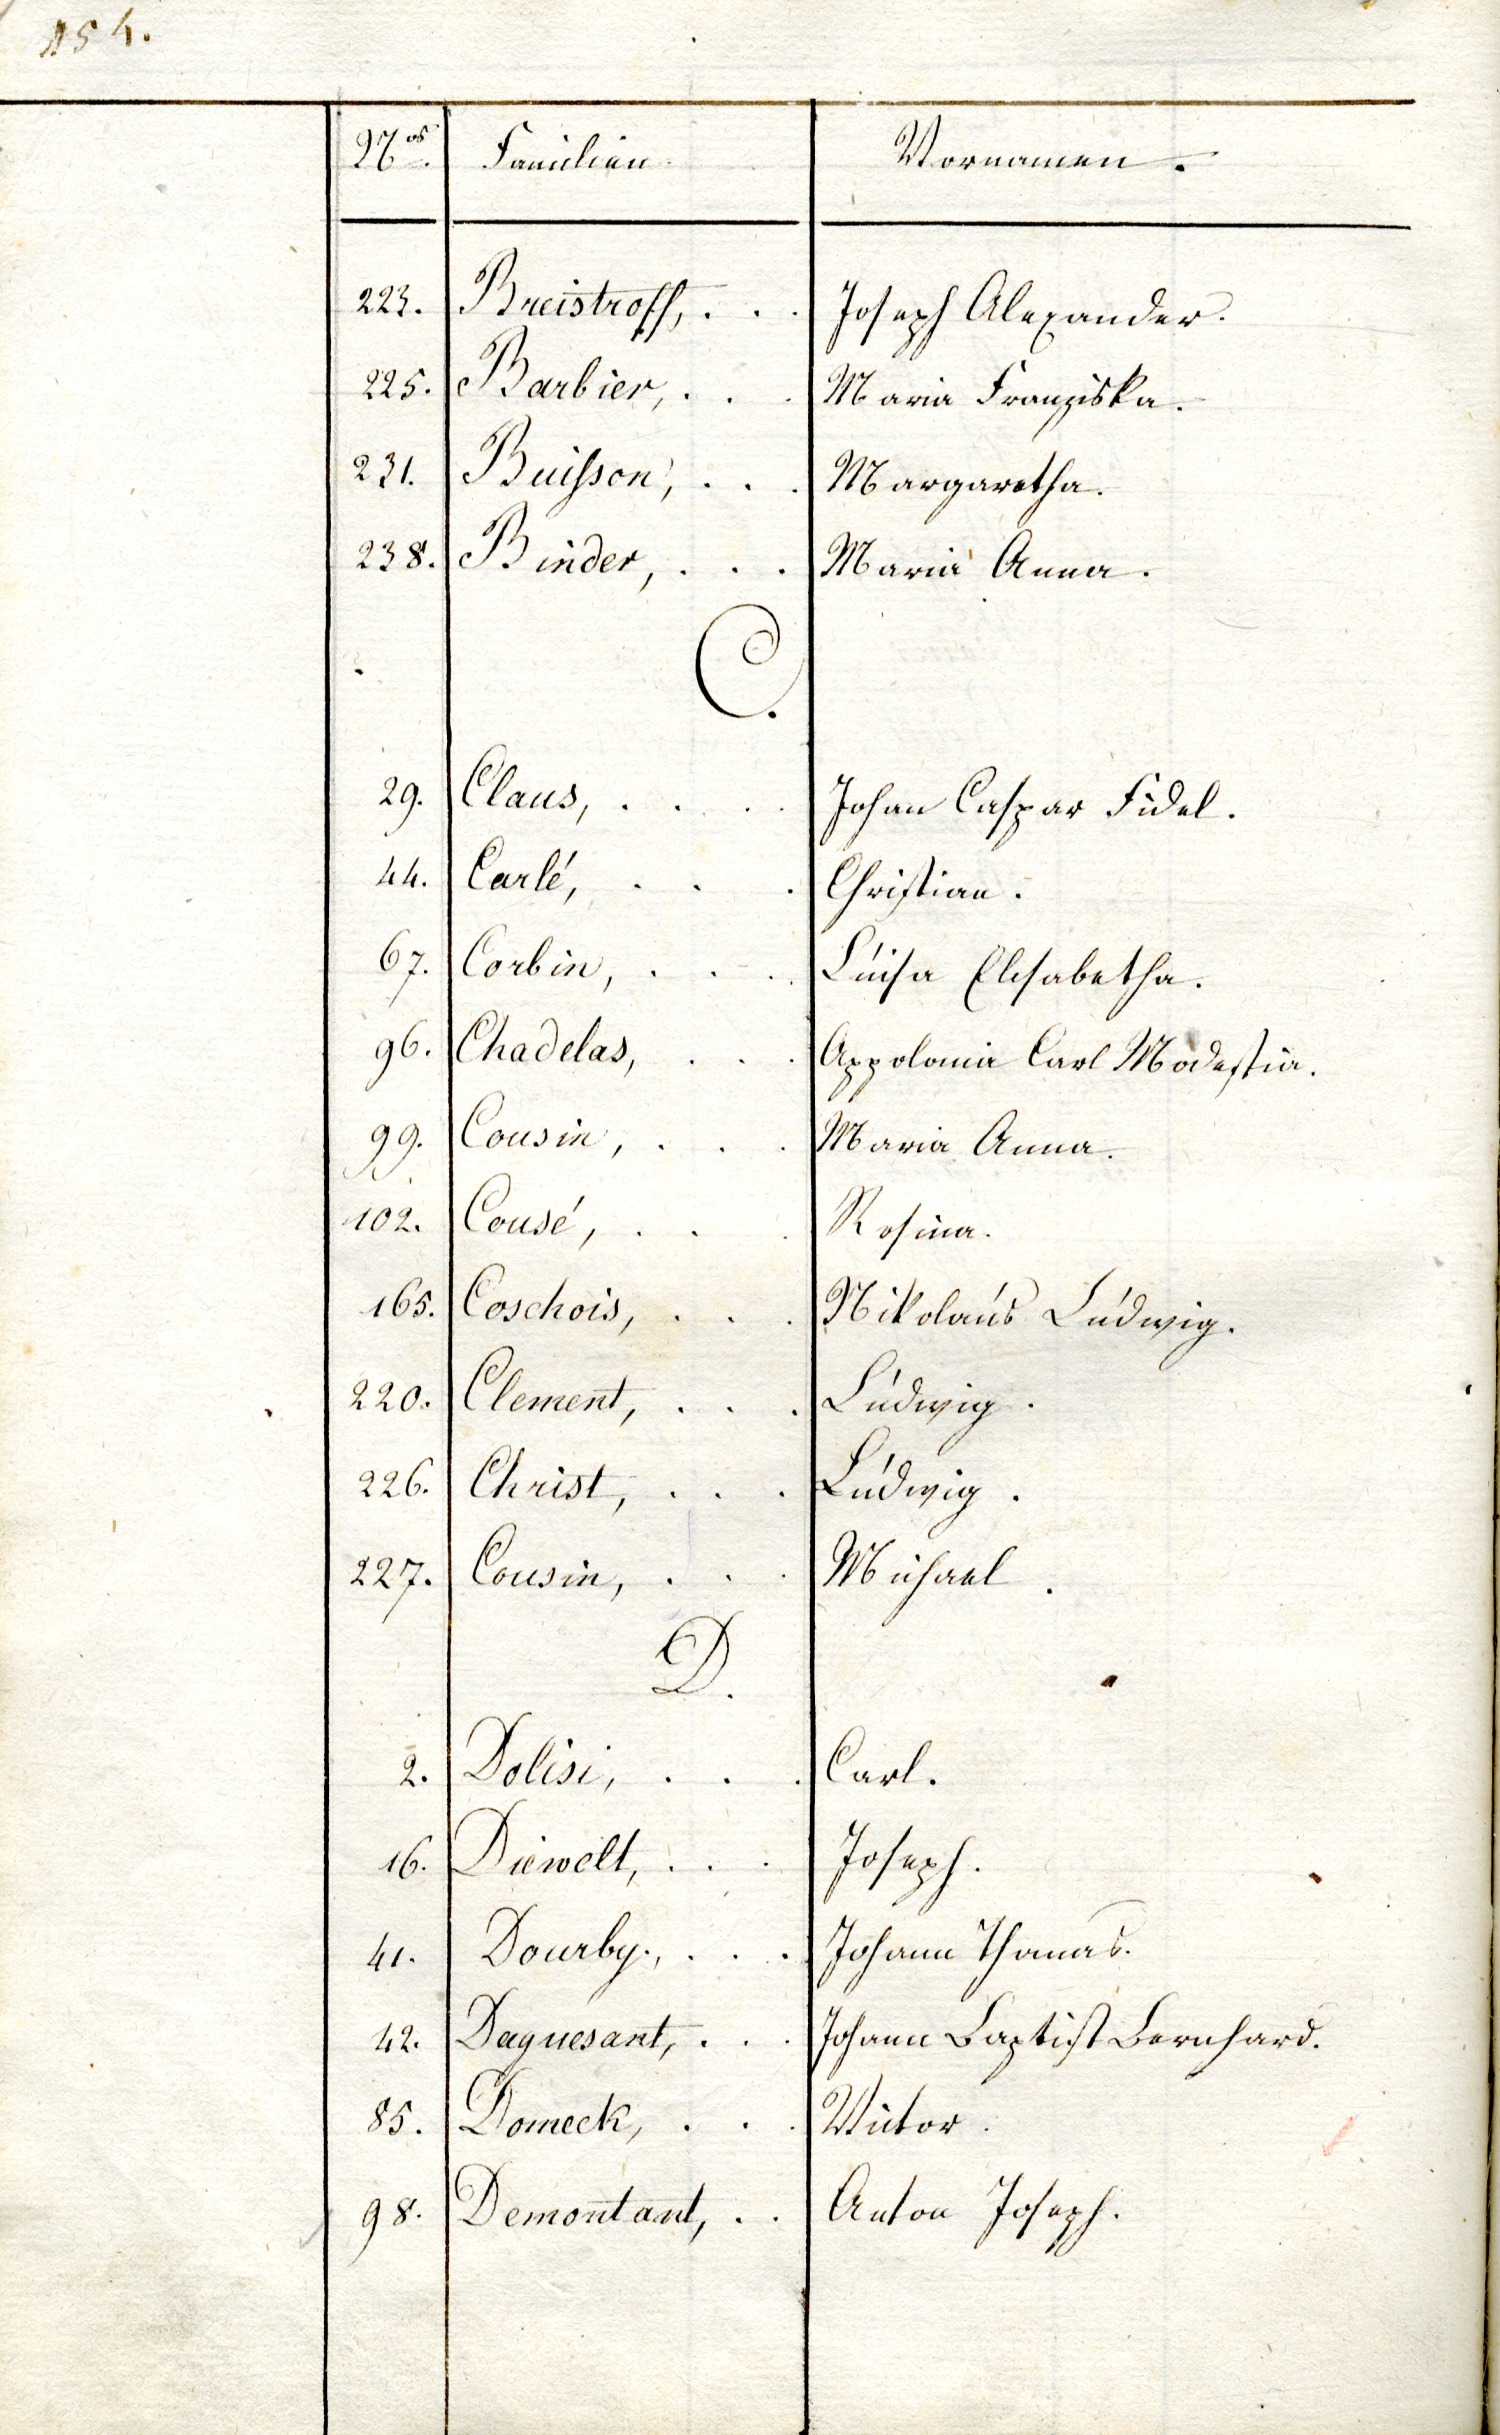 154.
Nos. Familien. Vornamen.
223. Breistroff, . . . Joseph Alexander.
225. Barbier, . . . Maria Franziska.
231. Buisson, . . . Margaretha.
238. Binder, . . . Maria Anna.
C.
29. Claus, . . . . Johan Caspar Fidel.
44. Carlé, . . . Christian.
67. Corbin, . . . Luisa Elisabetha.
96. Chadelas, . . . Appolonia Carl Modestia.
99. Cousin, . . . Maria Anna.
102. Cousé, . . . Rosina.
165. Coschois, . . . Nikolaus Ludwig.
220. Clement, . . . Ludwig.
226. Christ, . . . Ludwig.
227. Cousin, . . . Michael.
D.
2. Dolisi, . . . Carl.
16. Diewelt, . . . Joseph.
41. Dourby, . . . Johann Thomas.
42. Daquesant, . . . Johann Baptist Bernhard.
85. Domeck, . . . Victor.
98. Demontant, . . Anton Joseph.